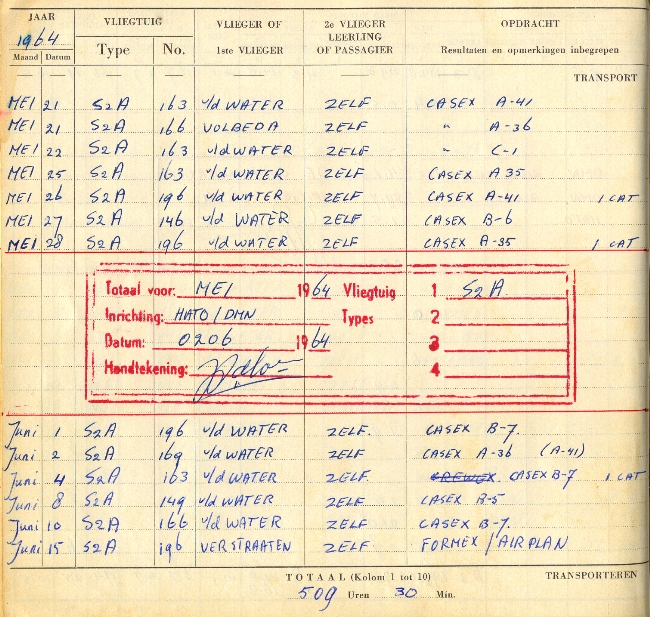 JAAR VLIEGTUIG VLIEGER OF 2e VLIEGER OPDRACHT
1964 LEERLING
Type No. 1ste VLIEGER OF PASSAGIER Resultaten en opmerkingen inbegrepen
Maand Datum
TRANSPORT
MEI 21 S2A 163 v/d WATER ZELF CASEX A-41
MEI 21 S2A 166 VOLBEDA ZELF " A-36
MEI 22 S2A 163 v/d WATER ZELF " C-1
MEI 25 S2A 163 v/d WATER ZELF CASEX A35
MEI 26 S2A 196 v/d WATER ZELF CASEX A-41 1 CAT
MEI 27 S2A 146 v/d WATER ZELF CASEX B-6
MEI 28 S2A 196 v/d WATER ZELF CASEX A-35 1 CAT
Totaal voor: MEI 1964 Vliegtuig 1 S2A
Inrichting: HATO/DMN Types 2
Datum: 0206 1964 3
Handtekening: 4
Juni 1 S2A 196 v/d WATER ZELF. CASEX B-7
Juni 2 S2A 169 v/d WATER ZELF CASEX A-36 (A-41)
Juni 4 S2A 163 v/d WATER ZELF CASEX B-7 1 CAT
Juni 8 S2A 149 v/d WATER ZELF CASEX B-5
Juni 10 S2A 166 v/d WATER ZELF CASEX B-7.
Juni 15 S2A 196 VERSTRAATEN ZELF FORMEX/AIRPLAN
TOTAAL (Kolom 1 tot 10) TRANSPORTEREN
509 Uren 30 Min.